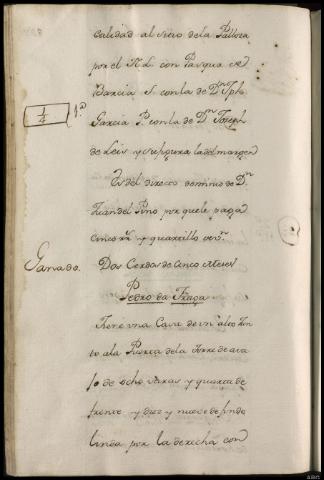 calidad al sitio de la Pallota
por el N. L. con Pasqua de
Barcia S. con la de Dn Jph
1/2 1ª Garcia P. con la de Dn Joseph
de Leis y su figura la del margen
Es del directo dominio de Dn
Juan del Pino por que le paga
cinco rs y quartillo de vn
Ganado. Dos Cerdos de cinco meses
Pedro da Fraga
Tiene una Casa de un alto
to a la Puerta de la Torre de ava
jo de ocho varas y quarta de
frente y diez y nueve de fondo
linda por la derecha con